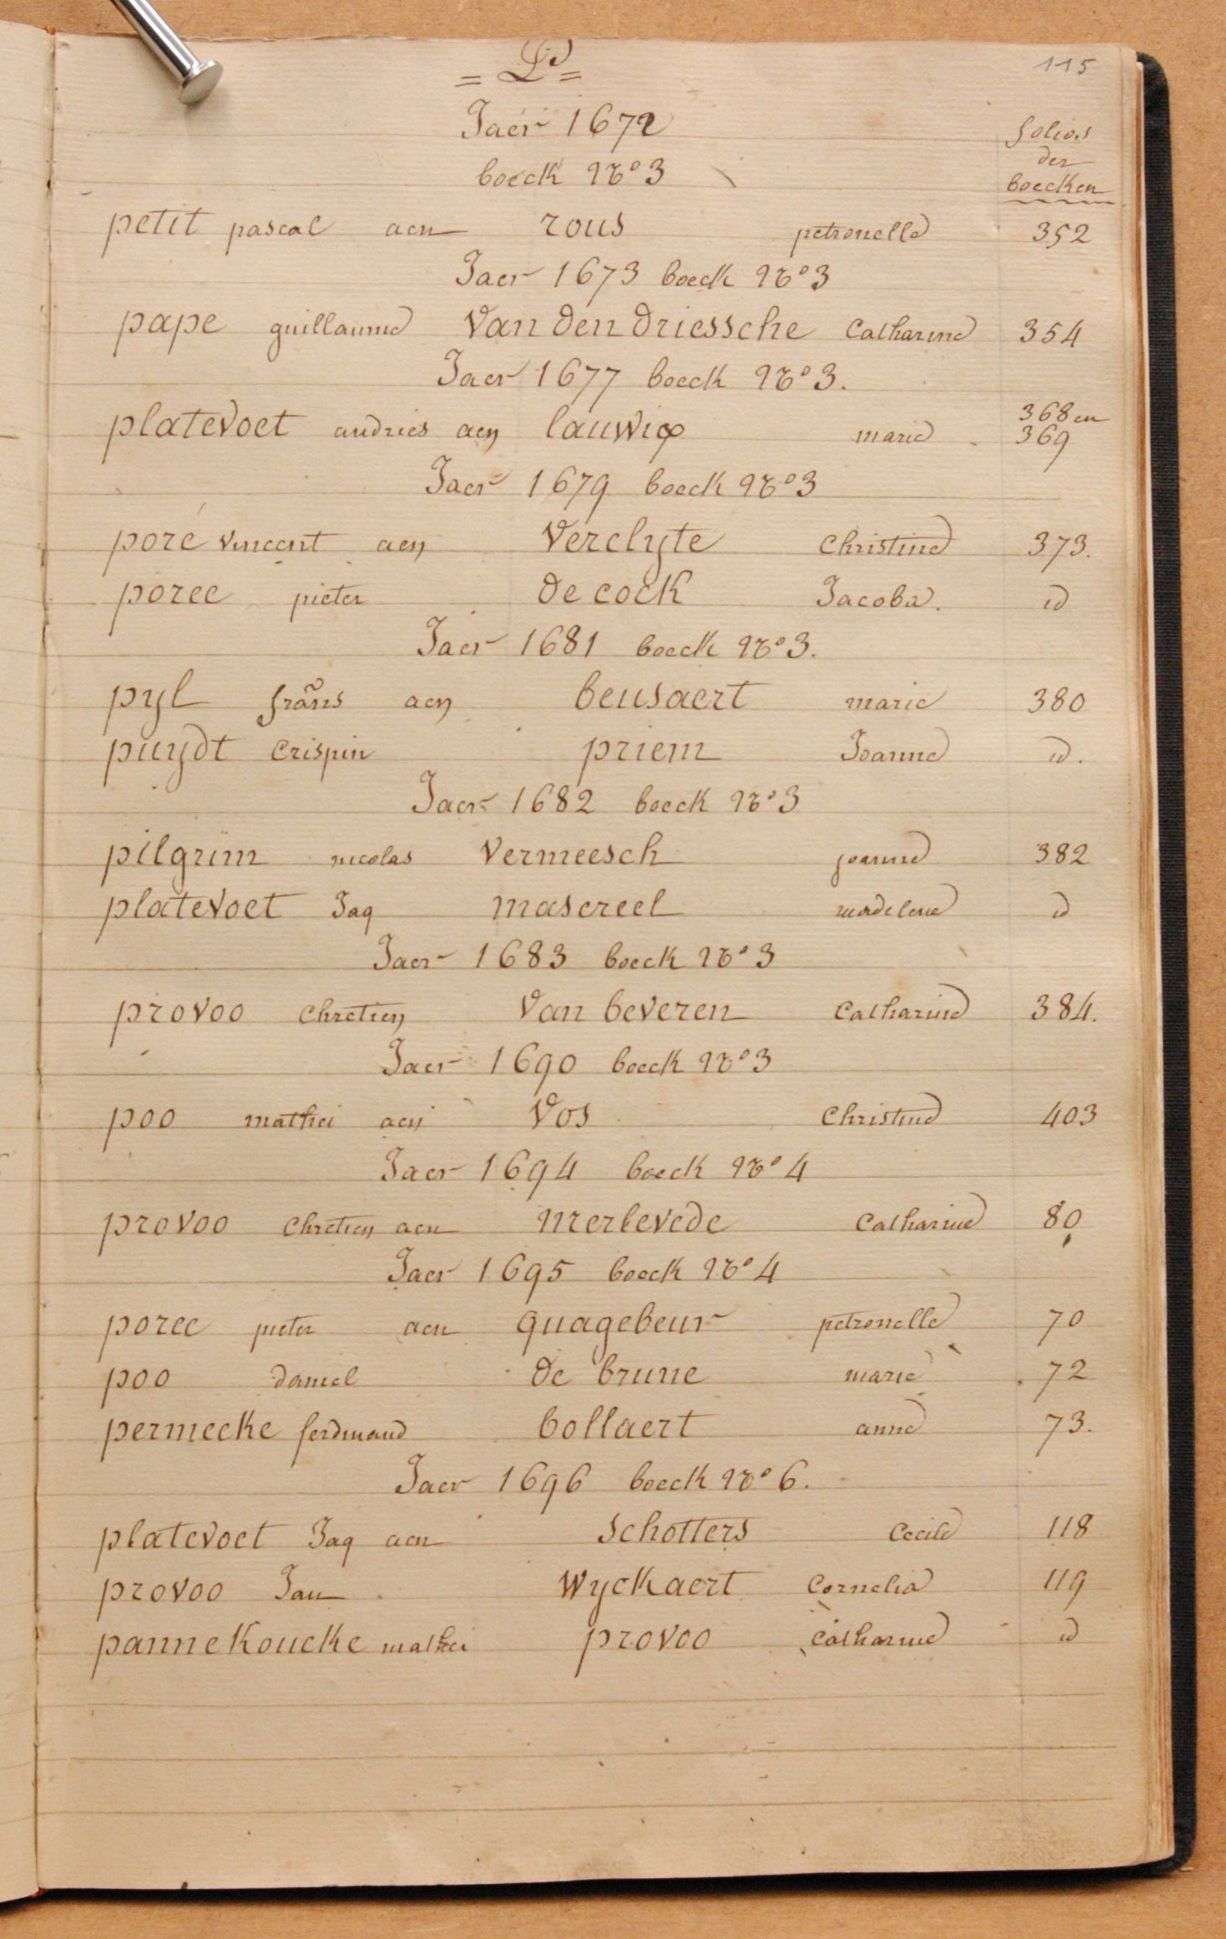 115
= P =
Jaer 1672
folios
der
boecken
boeck No 3
petit pascal aen rous petronelle 352
Jaer 1673 boeck No 3
pape guillaume Van den driessche Catharine 354
Jaer 1677 boeck No 3.
platevoet andries aen lauwig marie 368 en 369
Jaer 1679 boeck No 3
poré vincent aen Verclyte Christine 373.
poree pieter de cock Jacoba. id
Jaer 1681 boeck No 3.
pyl frãns aen beusaert marie 380
puydt Crispin priem Joanne id.
Jaer 1682 boeck No 3
pilgrim nicolas Vermeesch joanne 382
platevoet Jaq mascreel madelene id
Jaer 1683 boeck No 3
provoo Chretien Van beveren Catharine 384.
Jaer 1690 boeck No 3
poo mathei aen Vos Christine 403
Jaer 1694 boeck No 4
provoo Chretien aen merlevede Catharine 80
Jaer 1695 boeck No 4
poree pieter aen quagebeur petronelle 70
poo daniel de brune marie 72
permecke ferdinand bollaert anne 73.
Jaer 1696 boeck No 6.
platevoet Jaq aen Schotters Cecile 118
provoo Jan Wyckaert Cornelia 119
pannekoucke mathei provoo Catharine id